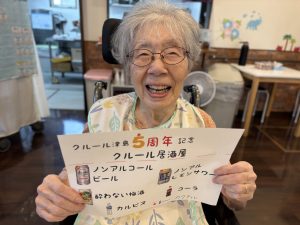 クルール津島5周年記念
クルール居酒屋
ノンアルコール
ビール
ノンアル
レモンサワー
酔わない梅酒
コーラ
カルピス